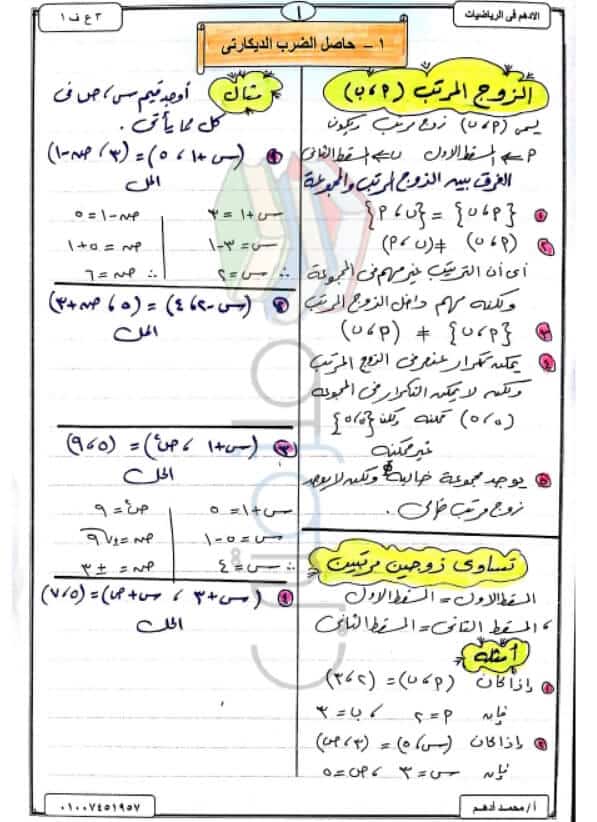 الادهم فى الرياضيات
١
٣ ع ف ١
١ – حاصل الضرب الديكارتى
الزوج المرتب (٩، ب)
يسمى (٩، ب) زوج مرتب ويكون
٩ ← المسقط الاول ب ← المسقط الثانى
الفرق بين الزوج المرتب والمجموعة
١ {٩، ب} = {ب، ٩}
٢ (٩، ب) ≠ (ب، ٩)
أى أن الترتيب غير مهم فى المجموعة
ولكنه مهم داخل الزوج المرتب
٣ {٩، ب} ≠ (٩، ب)
٤ يمكن تكرار عنصر فى الزوج المرتب
ولكن لا يمكن التكرار فى المجموعة
(٥، ٥) ممكنه ولكن {٥، ٥}
غير ممكنه
٥ يوجد مجموعة خالية ∅ ولكن لا يوجد
زوج مرتب خالى.
تساوى زوجين مرتبين
المسقط الاول = المسقط الاول
، المسقط الثانى = المسقط الثانى
أمثله
١ إذا كان (٩، ب) = (٢، ٣)
فإن ٩ = ٢ ، ب = ٣
٢ إذا كان (س، ٥) = (٣، ص)
فإن س = ٣ ، ص = ٥
مثال أوجد قيم س، ص فى
كل مما يأتى.
١ (س+١، ٥) = (٣، ص-١)
الحل
س+١ = ٣ ص-١ = ٥
س = ٣-١ ص = ٥+١
∴ س = ٢ ∴ ص = ٦
٢ (س-٢، ٤) = (٥، ص+٣)
الحل
٣ (س+١، ص²) = (٥، ٩)
الحل
س+١ = ٥ ص² = ٩
س = ٥-١ ص = ±√٩
∴ س = ٤ ص = ±٣
٤ (س+٣، س+ص) = (٥، ٧)
الحل
أ/ محمد أدهم
٠١٠٠٧٤٥١٩٥٧